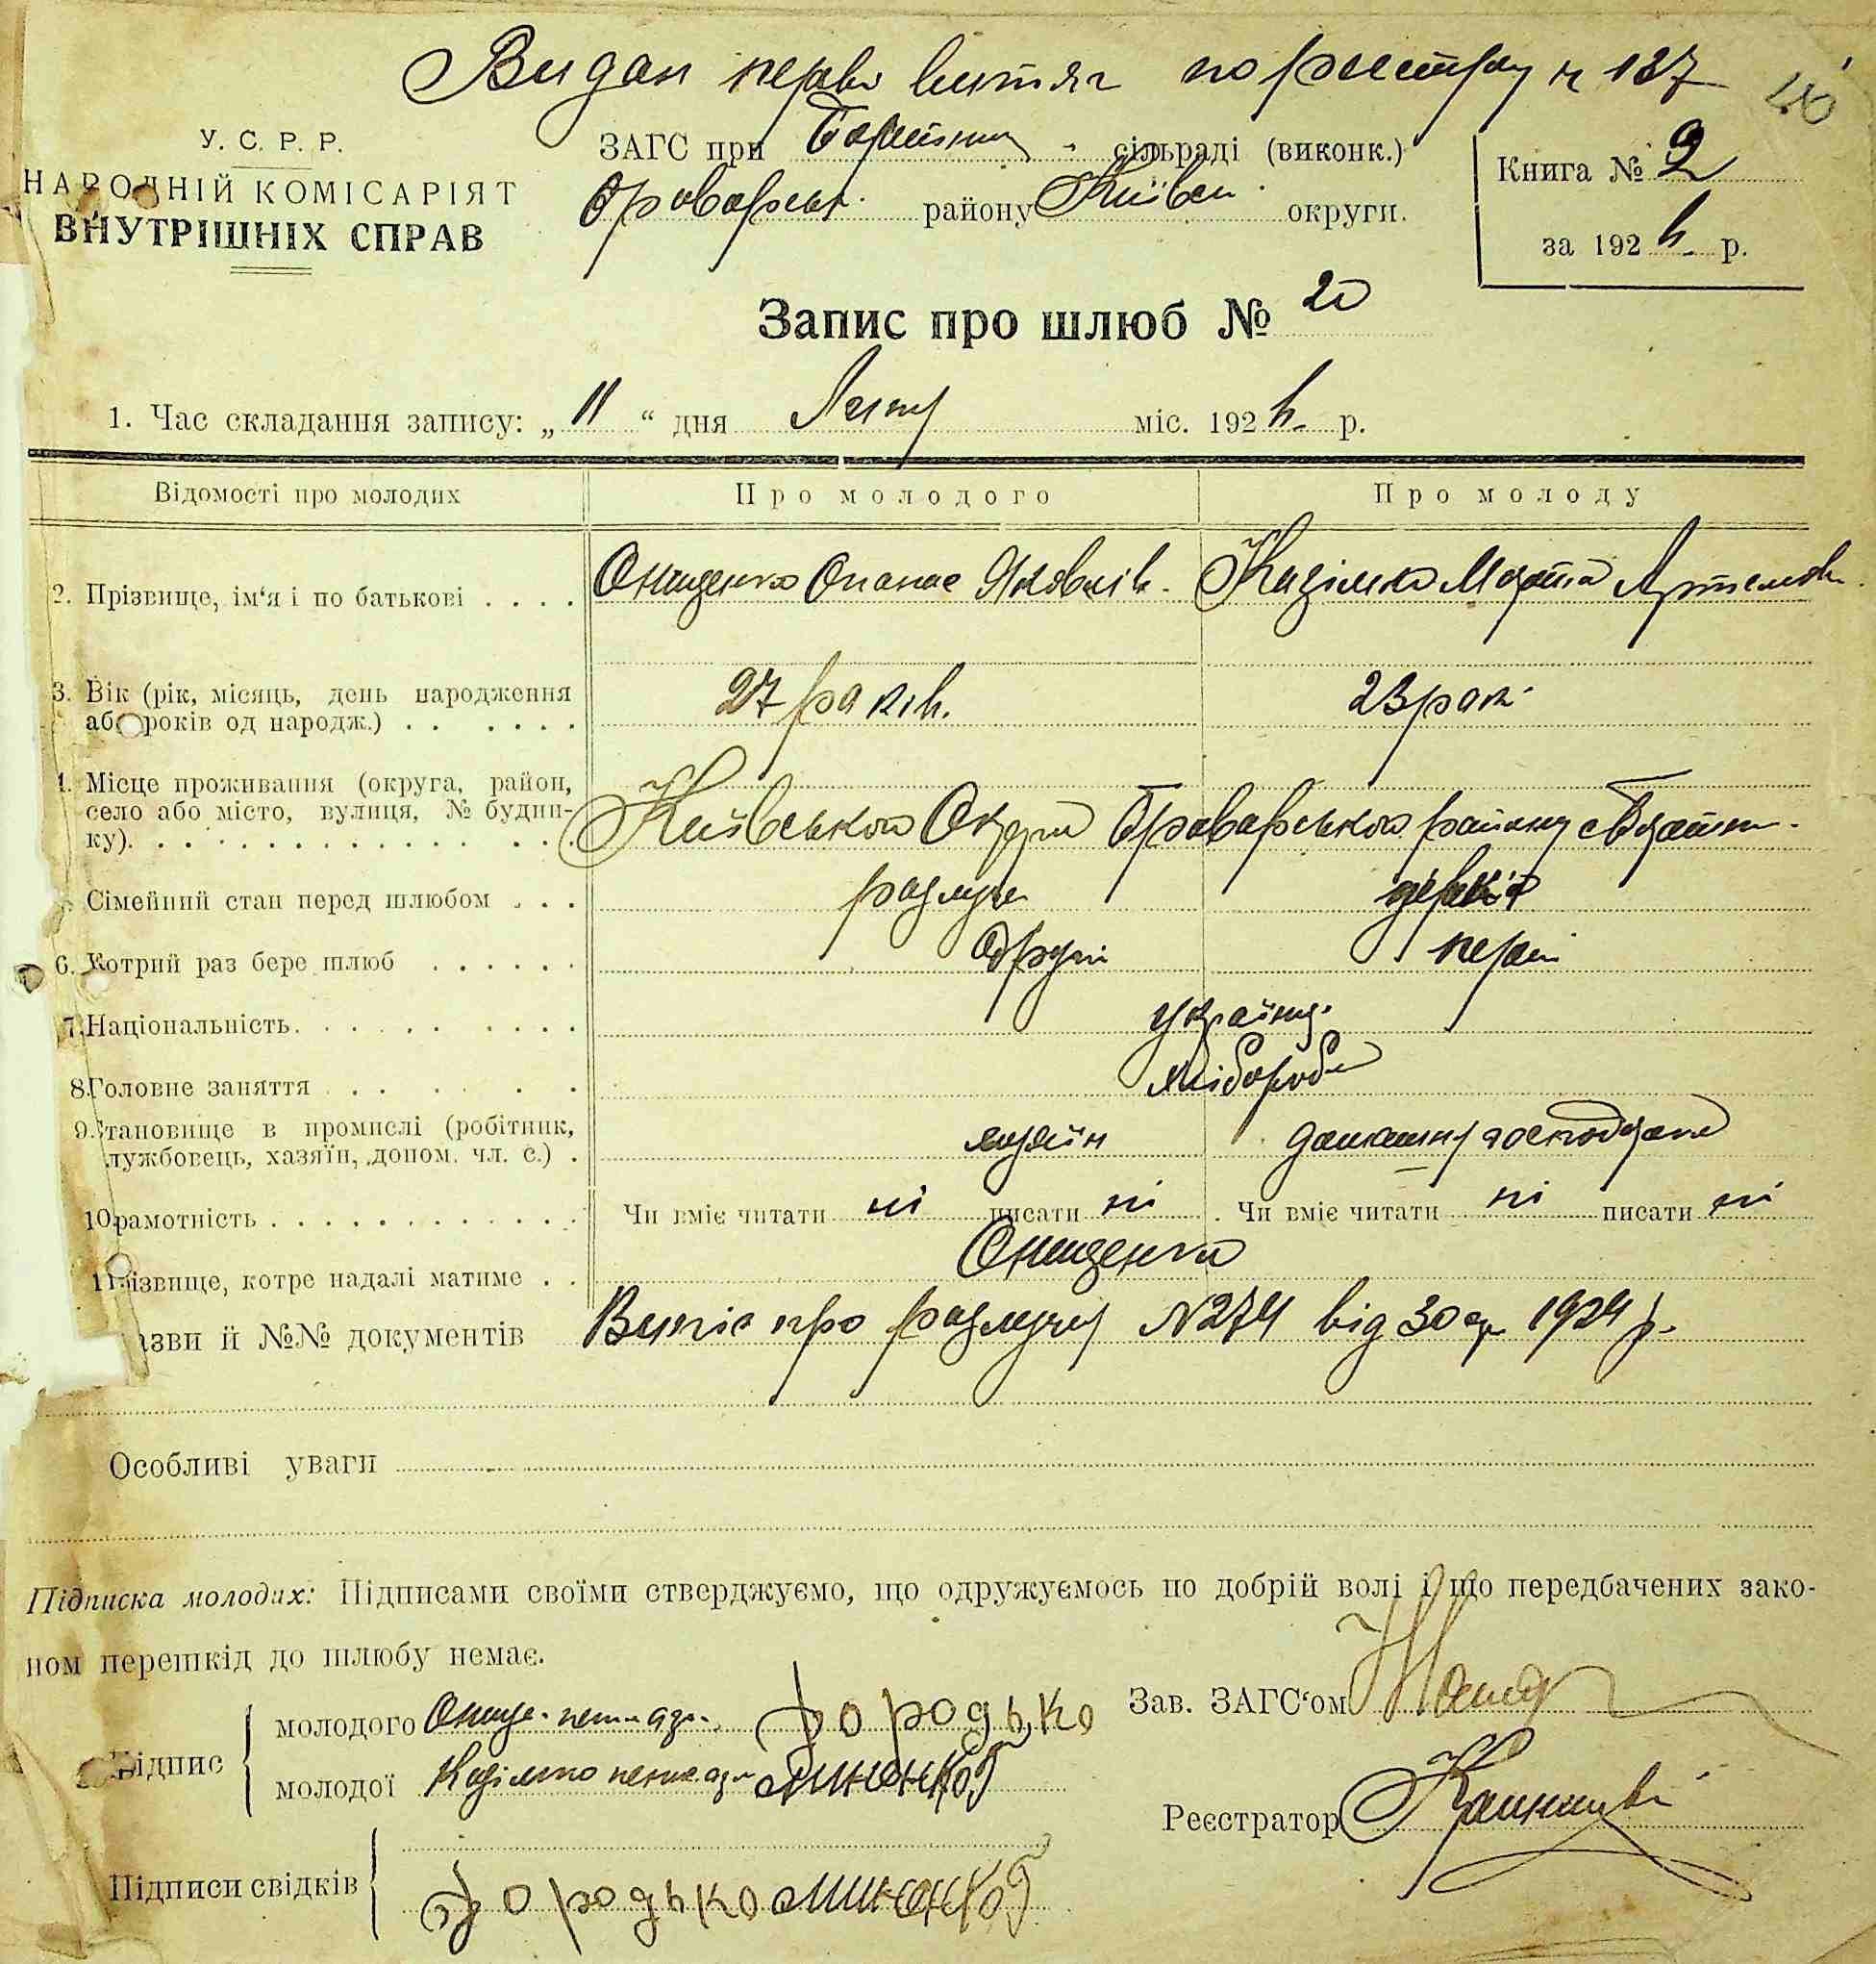 Видан перви витяг по реєстру н 137
У. С. Р. Р.
НАРОДНІЙ КОМІСАРІЯТ
ВНУТРІШНІХ СПРАВ
ЗАГС при сільраді (виконк.)
Броварськ. району Київськ. округи.
Книга № 2
за 192 р.
Запис про шлюб № 20
1. Час складання запису: „ 11 “ дня міс. 192 р.
Відомості про молодих Про молодого Про молоду
2. Прізвище, ім‘я і по батькові . . . . Онищенко Опанас Яковлів. Марта Артемов.
3. Вік (рік, місяць, день народження
або років од народж.) . . . . . . 27 років. 23 рок.
4. Місце проживання (округа, район,
село або місто, вулиця, № будин-
ку). . . . Київської Округи Броварського району
Сімейний стан перед шлюбом . . . розлуч
6. Котрий раз бере шлюб . . . . . . другий перш
7. Національність. . . . . . . . україн.
8. Головне заняття . . . . . хлібороб
9. Становище в промислі (робітник,
службовець, хазяїн, допом. чл. с.) . хазяїн домашня господарка
10. рамотність . . . . . . . . . . . . Чи вміє читати ні писати ні Чи вміє читати ні писати ні
11. різвище, котре надалі матиме . . Онищенко
азви й №№ документів Витяг про розлуку N 274 від 30 1924 р.
Особливі уваги
Підписка молодих: Підписами своїми стверджуємо, що одружуємось по добрій волі і що передбачених зако-
ном перешкід до шлюбу немає.
Зав. ЗАГС‘ом
Підпис
молодого Онище. Бородько
молодої
Реєстратор
Підписи свідків
Бородько